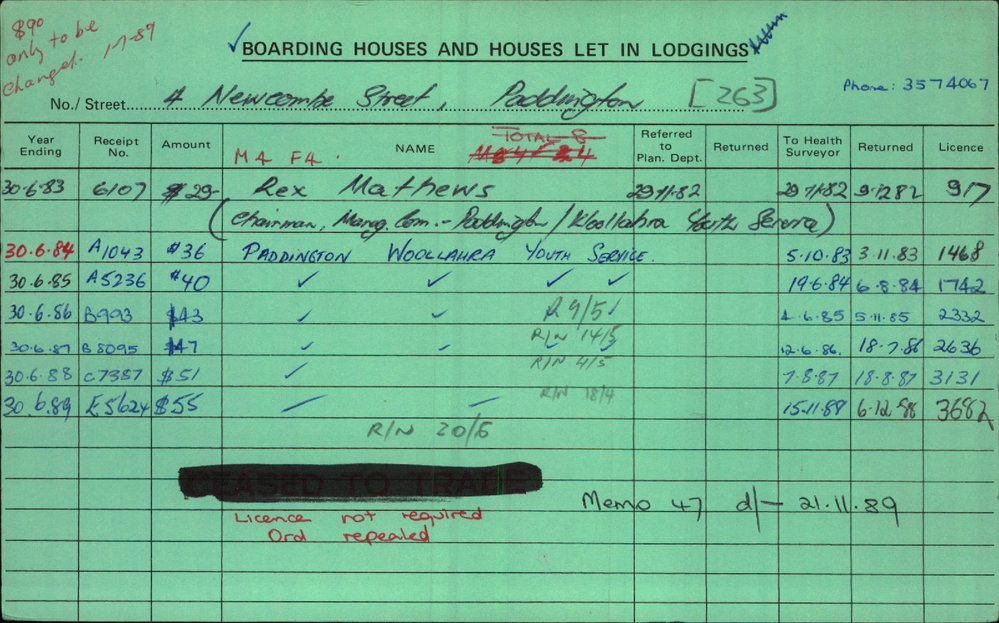 $90
only to be
changed. 1-7-89
BOARDING HOUSES AND HOUSES LET IN LODGINGS
No./Street 4 Newcombe Street, Paddington [263]
Phone: 3574067
Year Ending Receipt No. Amount NAME Referred to Plan. Dept. Returned To Health Surveyor Returned Licence
M4 F4. TOTAL 8
30.6.83 6107 $29- Rex Mathews 29.11.82 29.11.82 9.12.82 917
(Chairman, Manag. Com. - Paddington/Woollahra Youth Service)
30.6.84 A1043 $36 PADDINGTON WOOLLAHRA YOUTH SERVICE. 5.10.83 3.11.83 1468
30.6.85 A5236 $40 ✓ ✓ ✓ ✓ 19.6.84 6.8.84 1742
30.6.86 B993 $43 ✓ ✓ R 9/5 ✓ 4.6.85 5.11.85 2332
R/N 14/5
30.6.87 B8095 $47 ✓ ✓ ✓ ✓ 12.6.86. 18.7.86 2636
R/N 4/5
30.6.88 C7387 $51 ✓ 7.8.87 18.8.87 3131
R/N 18/4
30.6.89 E5624 $55 ✓ ✓ 15.11.88 6.12.88 3682
R/N 20/6
CEASED TO TRADE
Memo 47 d/- 21.11.89
Licence not required
Ord repealed